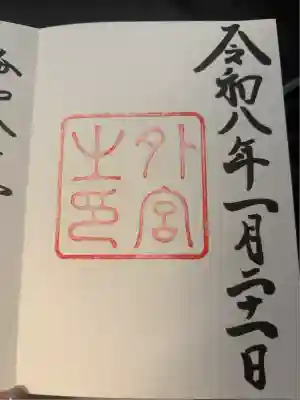 令和八年一月二十一日
外宮
之印